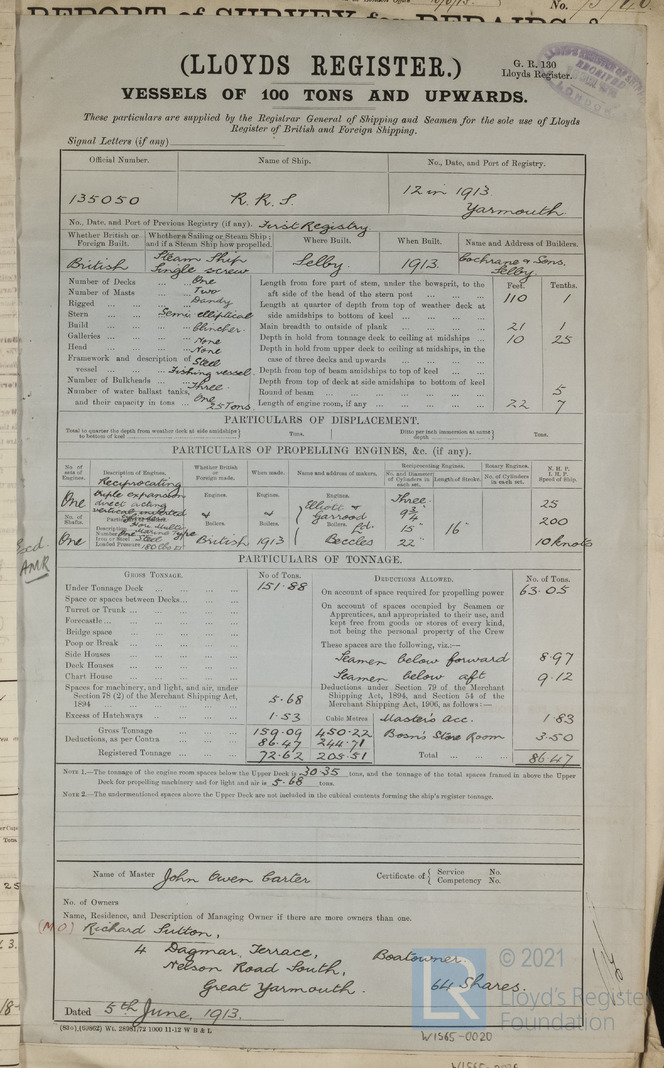 REPORT of SURVEY for REPAIRS, &
No.
(LLOYDS REGISTER.)
G. R. 130
Lloyds Register.
VESSELS OF 100 TONS AND UPWARDS.
These particulars are supplied by the Registrar General of Shipping and Seamen for the sole use of Lloyds
Register of British and Foreign Shipping.
Signal Letters (if any)
Official Number. Name of Ship. No., Date, and Port of Registry.
135050 R. R. S. 12 in 1913
Yarmouth.
No., Date, and Port of Previous Registry (if any). First Registry
Whether British or Foreign Built. Whether a Sailing or Steam Ship; and if a Steam Ship how propelled. Where Built. When Built. Name and Address of Builders.
British Steam Ship Single screw Selby 1913 Cochrane & Sons. Selby.
Feet. Tenths.
Number of Decks ... One
Number of Masts ... Two
Rigged ... Dandy
Stern ... Semi elliptical
Build ... Clincher.
Galleries ... None
Head ... None
Framework and description of vessel ... Steel Fishing vessel.
Number of Bulkheads ... Three.
Number of water ballast tanks, and their capacity in tons ... One 25 Tons.
Length from fore part of stem, under the bowsprit, to the aft side of the head of the stern post ... 110 1
Length at quarter of depth from top of weather deck at side amidships to bottom of keel ...
Main breadth to outside of plank ... 21 1
Depth in hold from tonnage deck to ceiling at midships ... 10 25
Depth in hold from upper deck to ceiling at midships, in the case of three decks and upwards ...
Depth from top of beam amidships to top of keel ...
Depth from top of deck at side amidships to bottom of keel
Round of beam ... 5
Length of engine room, if any ... 22 7
PARTICULARS OF DISPLACEMENT.
Total to quarter the depth from weather deck at side amidships to bottom of keel Tons. Ditto per inch immersion at same depth Tons.
PARTICULARS OF PROPELLING ENGINES, &c. (if any).
No. of sets of Engines. Description of Engines. Whether British or Foreign made. When made. Name and address of makers. Reciprocating Engines. Rotary Engines. N. H. P.
I. H. P.
Speed of Ship.
No. and Diameter of Cylinders in each set. Length of Stroke. No. of Cylinders in each set.
One Reciprocating
triple expansion
direct acting
vertical inverted
Engines. Engines. Engines.
Elliott &
Garrood
Ld.
Beccles
Three.
9¾
15"
22"
16"
25
200
10 knots
No. of Shafts.
One
Boilers. Boilers. Boilers.
Description
Number One
Iron or Steel Steel
Loaded Pressure 180 lbs
British 1913
AMR
PARTICULARS OF TONNAGE.
GROSS TONNAGE. No of Tons. DEDUCTIONS ALLOWED. No. of Tons.
Under Tonnage Deck ... 151·88
Space or spaces between Decks...
Turret or Trunk ...
Forecastle...
Bridge space
Poop or Break
Side Houses
Deck Houses
Chart House
Spaces for machinery, and light, and air, under Section 78 (2) of the Merchant Shipping Act, 1894 5·68
Excess of Hatchways ... 1·53
Cubic Metres
Gross Tonnage 159·09 450·22
Deductions, as per Contra ... 86·47 244·71
Registered Tonnage ... 72·62 205·51
On account of space required for propelling power 63·05
On account of spaces occupied by Seamen or Apprentices, and appropriated to their use, and kept free from goods or stores of every kind, not being the personal property of the Crew
These spaces are the following, viz.:—
Seamen below forward 8·97
Seamen below aft 9·12
Deductions under Section 79 of the Merchant Shipping Act, 1894, and Section 54 of the Merchant Shipping Act, 1906, as follows:—
Master's acc. 1·83
Bosn's Store Room 3·50
Total ... 86·47
NOTE 1.—The tonnages of the engine room spaces below the Upper Deck is 30·35 tons, and the tonnage of the total spaces framed in above the Upper
Deck for propelling machinery and for light and air is 5·68 tons.
NOTE 2.—The undermentioned spaces above the Upper Deck are not included in the cubical contents forming the ship's register tonnage.
Name of Master John Owen Carter Certificate of { Service No.
Competency No.
No. of Owners
Name, Residence, and Description of Managing Owner if there are more owners than one.
(M.O) Richard Sutton,
4 Dagmar Terrace, Boatowner.
Nelson Road South,
Great Yarmouth. 64 Shares.
Dated 5th June, 1913.
LR © 2021
Lloyd's Register
Foundation
W1565-0020